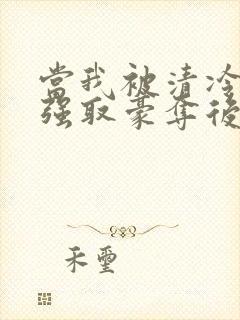 當我被清冷
強取豪奪後
禾璽